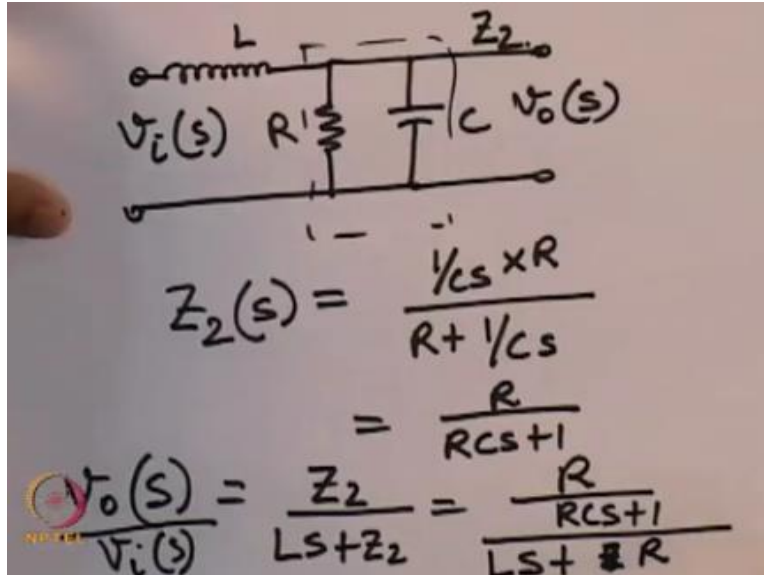 L Z₂
Vᵢ(s) R C V₀(s)
Z₂(s) = (1/Cs × R) / (R + 1/Cs)
= R / (RCs+1)
V₀(s)/Vᵢ(s) = Z₂ / (Ls+Z₂) = (R / (RCs+1)) / (Ls + R
NPTEL